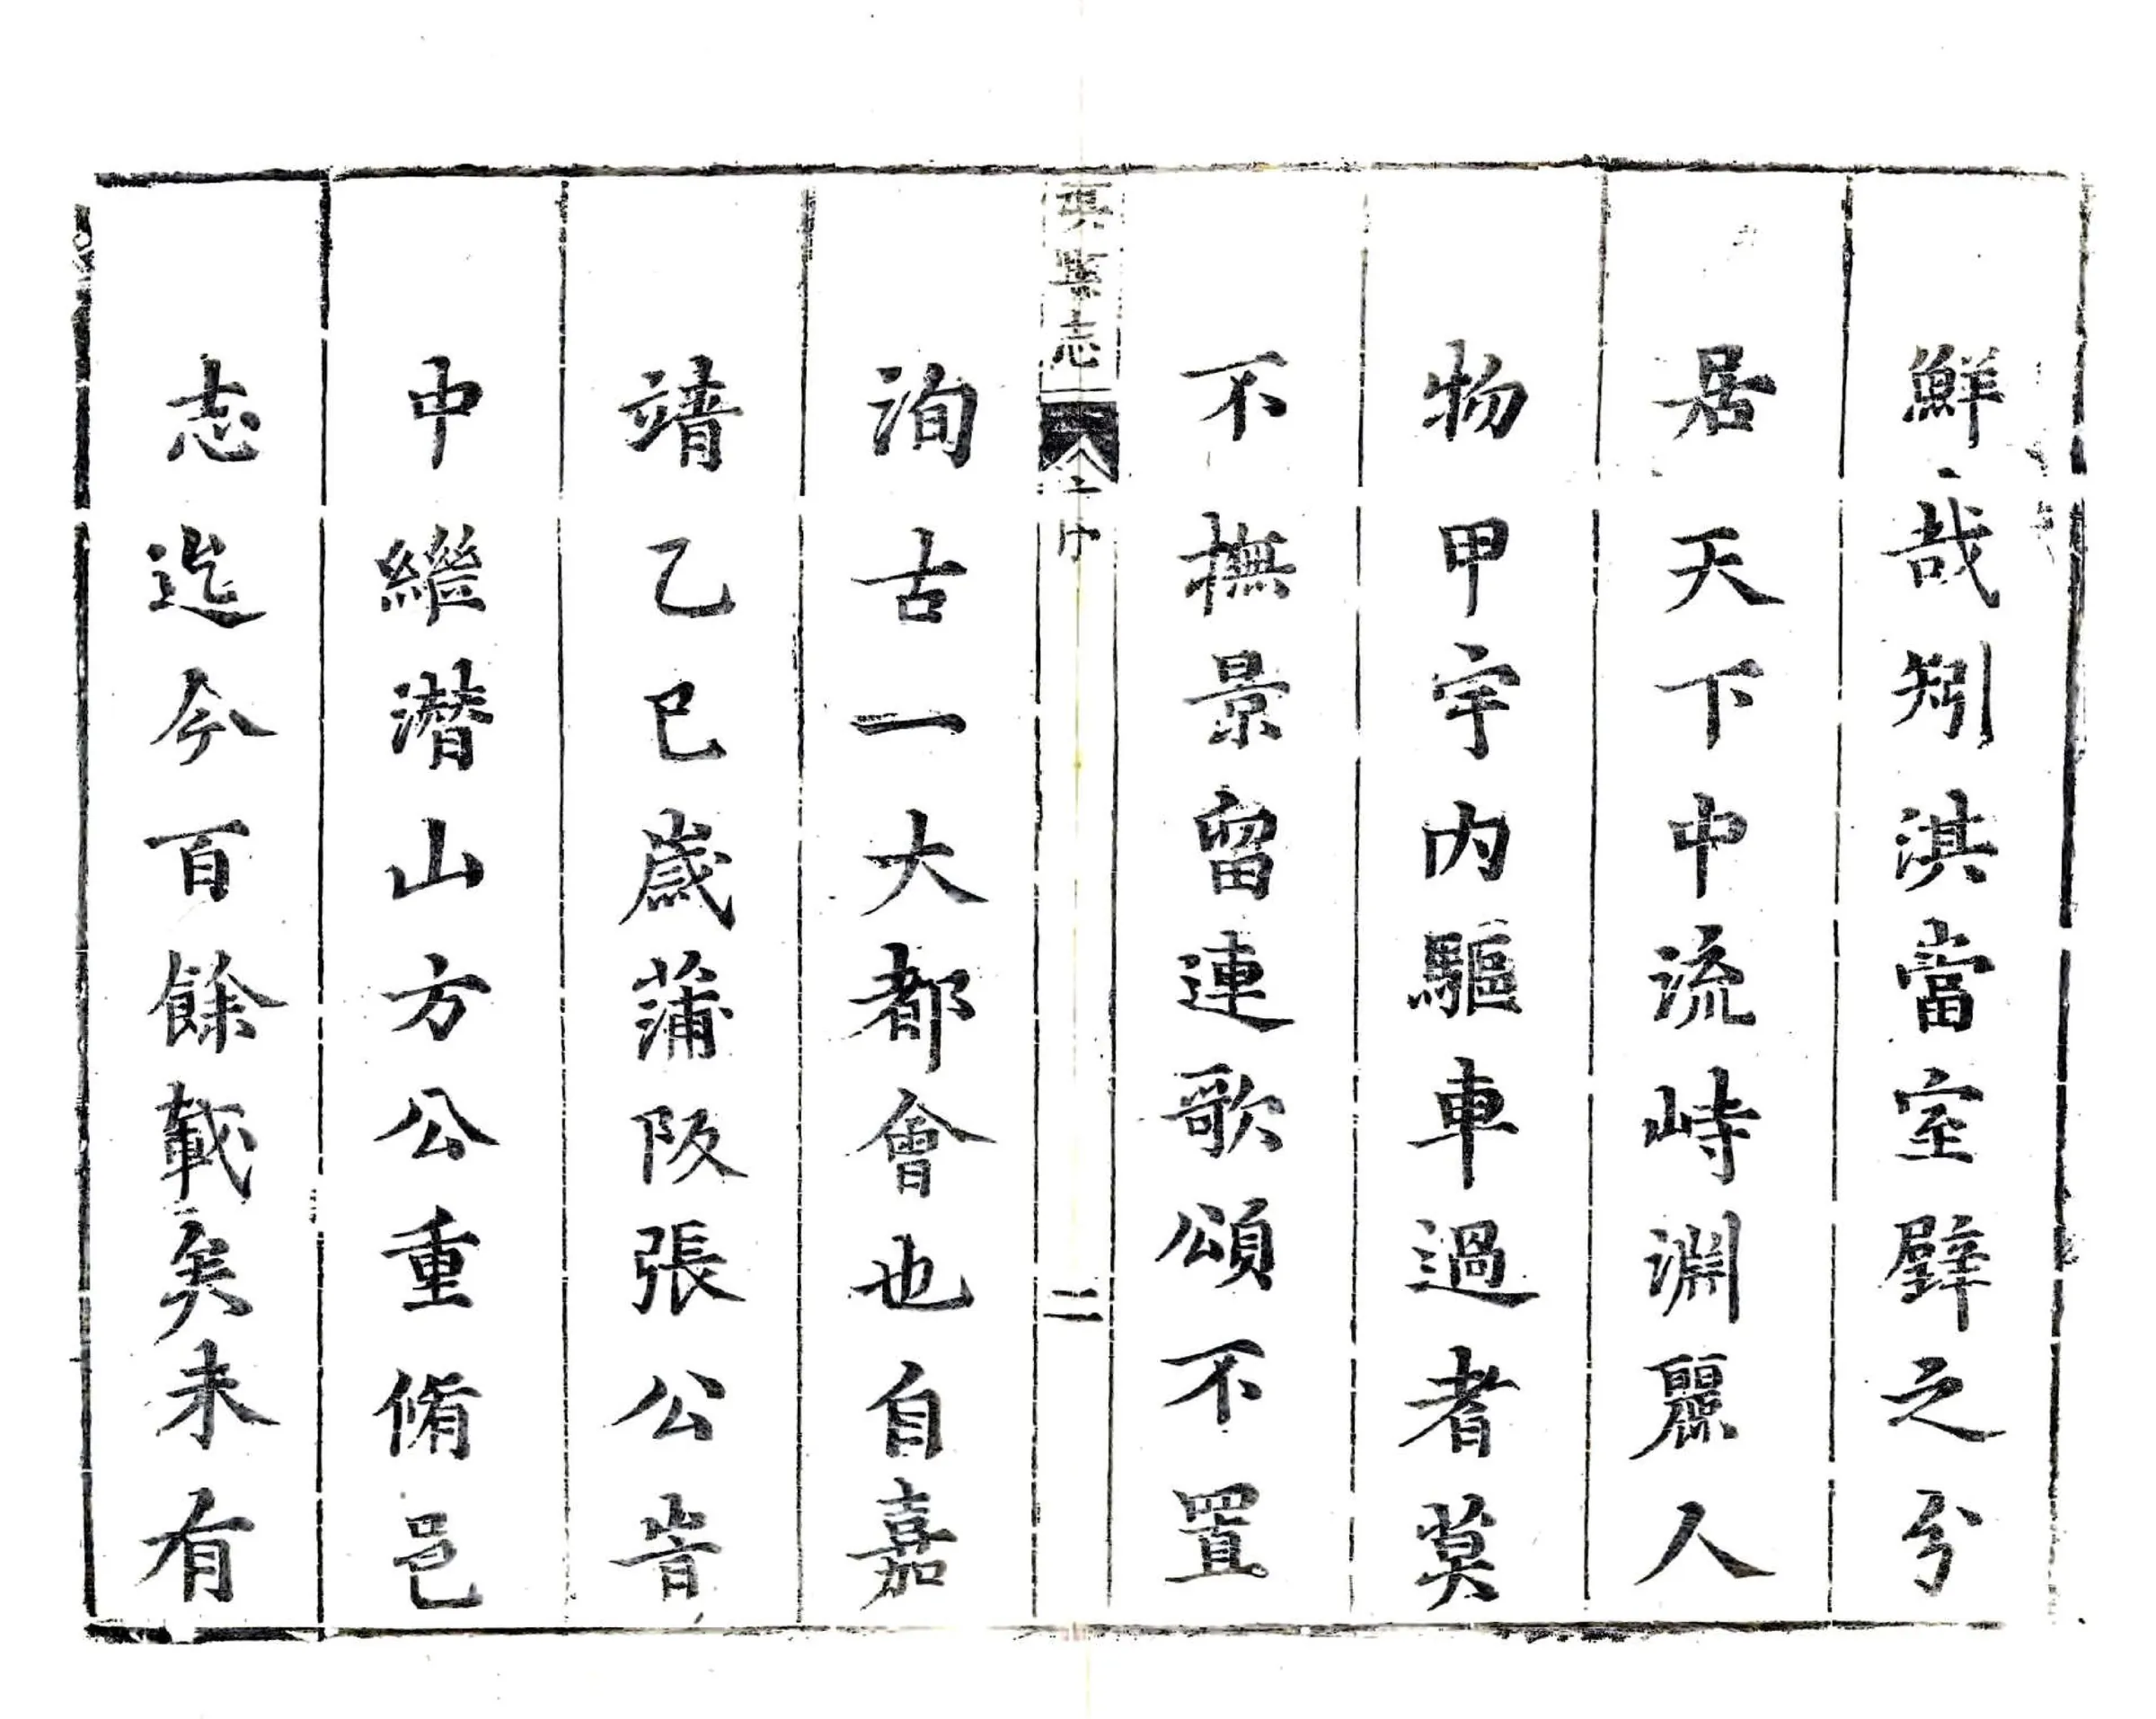 鮮哉矧淇當室壁之兮
居天下中流峙淵麗人
物甲宇内驅車過者莫
不撫景留連歌頌不置
淇縣志
序
二
洵古一大都會也自嘉
靖乙巳歲蒲阪張公旹
中繼潜山方公重脩邑
志迄今百餘載矣未有